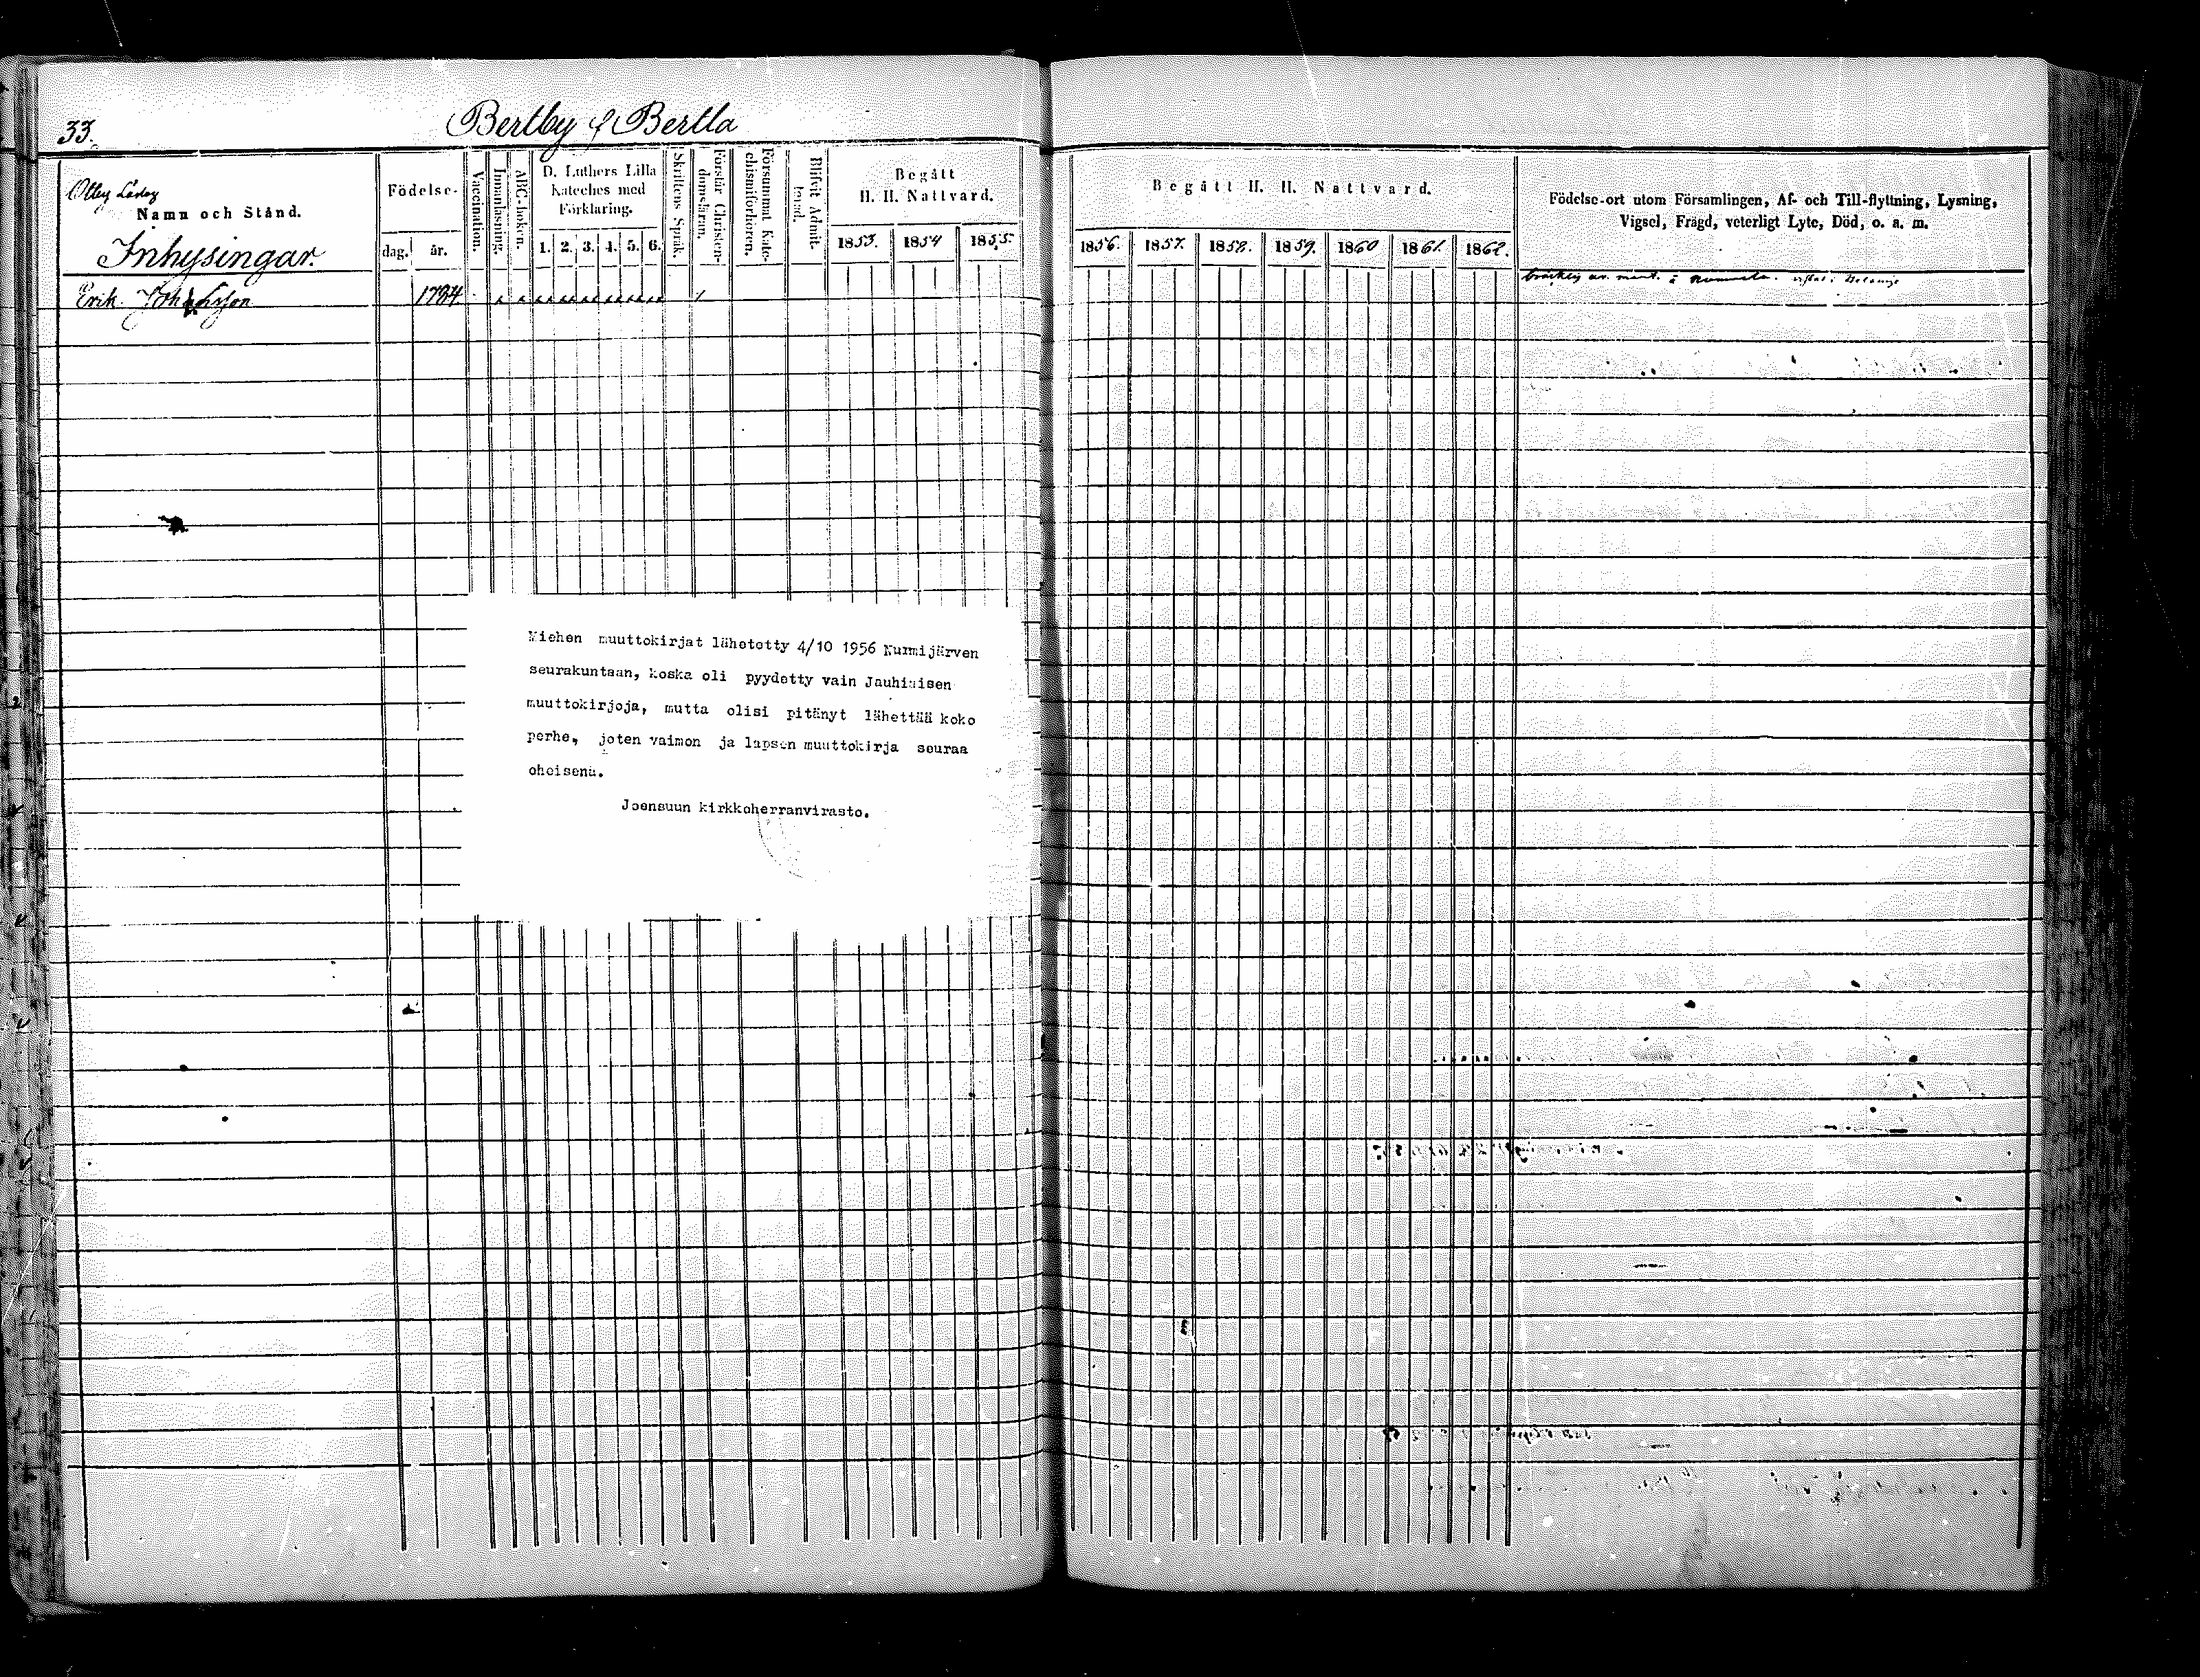 33.
Bertby & Bertla
Namn och Stånd.
Inhysingar.
Födelse-
dag.
år.
Vaccination.
Innanläsning.
ABC-boken.
D. Luthers Lilla
Kateches med
Förklaring.
1. 2. 3. 4. 5. 6.
Skriftens Språk.
Förstår Christen-
domsläran.
Försummat Kate-
chismiförhören.
Blifvit Admit-
terad.
Begått
H. H. Nattvard.
1853. 1854 1855.
Erik Johansson 1784
Miehen muuttokirjat lähetetty 4/10 1956 Nurmijärven
seurakuntaan, koska oli pyydetty vain Jauhiaisen
muuttokirjoja, mutta olisi pitänyt lähettää koko
perhe, joten vaimon ja lapsen muuttokirja seuraa
oheisena.
Joensuun kirkkoherranvirasto.
Begått H. H. Nattvard.
1856. 1857. 1858. 1859. 1860 1861. 1862.
Födelse-ort utom Församlingen, Af- och Till-flyttning, Lysning,
Vigsel, Frägd, veterligt Lyte, Död, o. a. m.